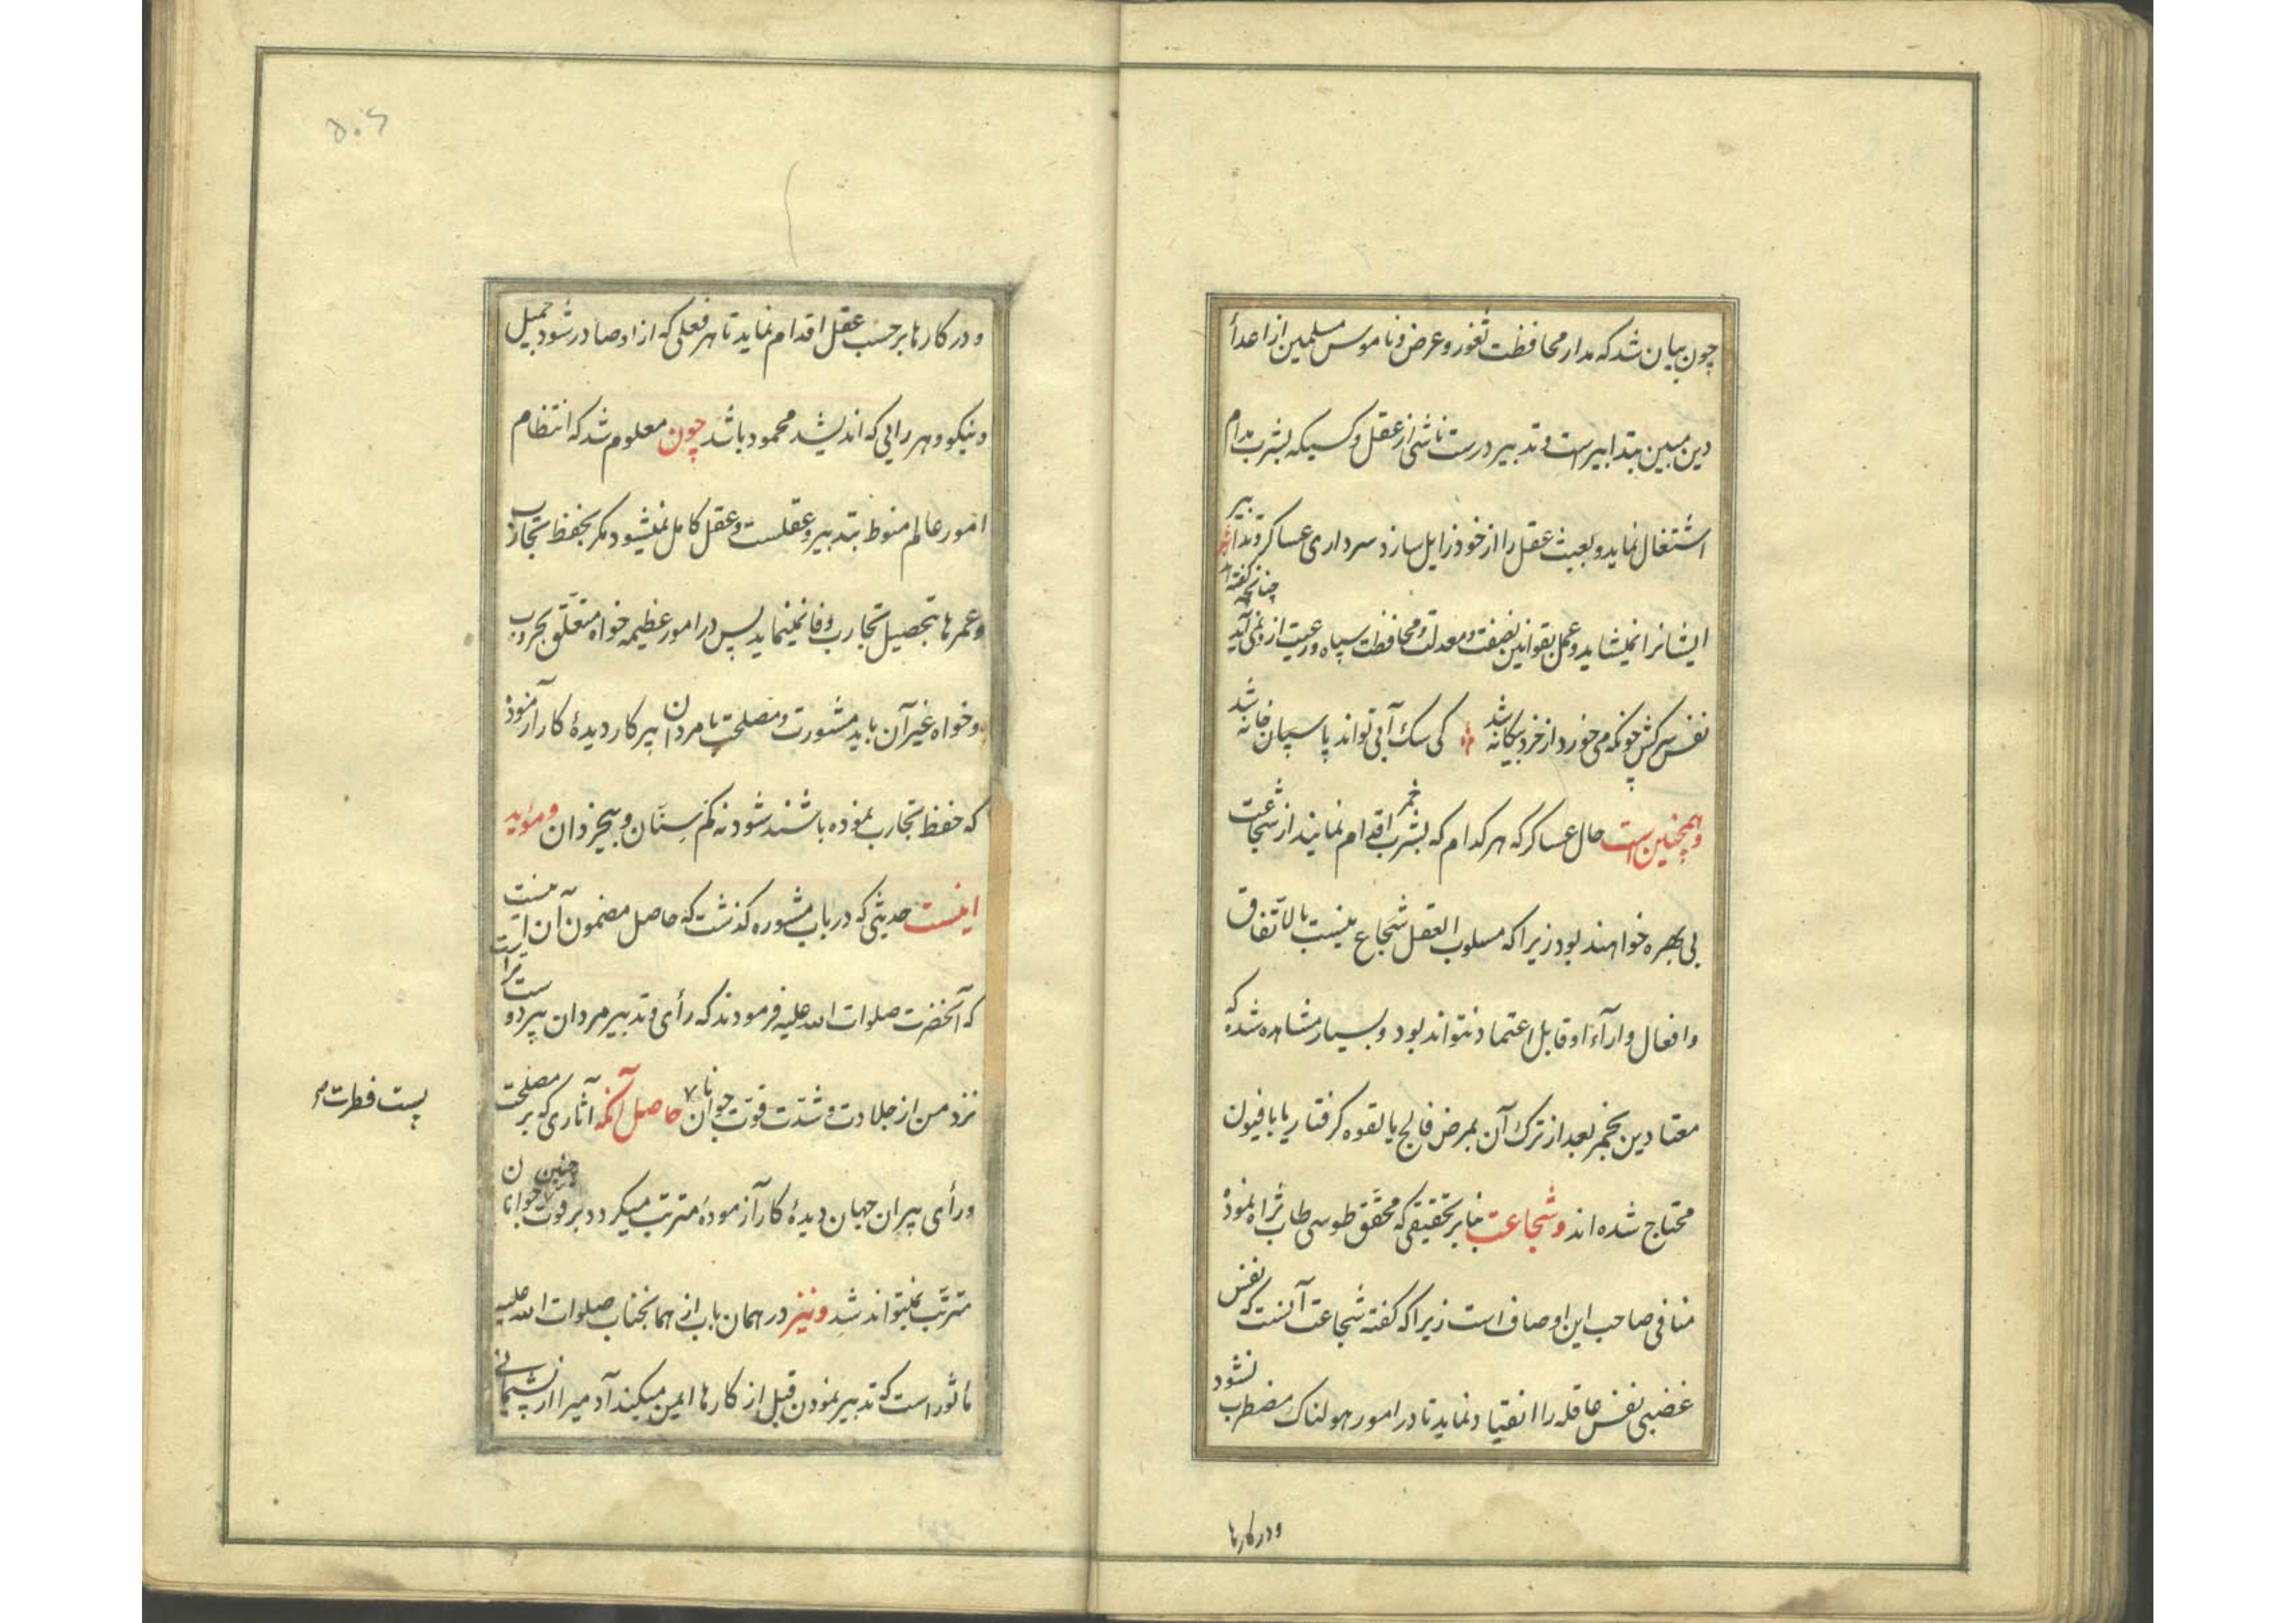 چون بیان شد که مدار محافظت ثغور و عرض و ناموس مسلمین از اعدأ
دین مبین بتدابیر است و تدبیر درست ناشی از عقل و کسیکه بشرب مدام
اشتغال نماید و بعبث عقل را از خود زایل سازد سرداری عساکر و تدابیر
ایشانرا نمیشاید و عمل بقوانین نصفت و معدلت و محافظت سپاه و رعیت از و نمی آید چنانچه گفته اند
نفس سرکش چونکه می خورد از خرد بیگانه شد کی سک آبی تواند پاسبان خانه شد
و همچنین است حال عساکر که هر کدام که بشرب خمر اقدام نمایند از شجاعت
بی بهره خواهند بود زیرا که مسلوب العقل شجاع نیست بالاتفاق
و افعال و ارآء او قابل اعتماد نتواند بود و بسیار مشاهده شده که
معتادین بخمر بعد از ترک آن بمرض فالج یا لقوه کرفتار یا بافیون
محتاج شده اند و شجاعت بنا بر تحقیقی که محقق طوسی طاب ثراه نموده
منافی صاحب این اوصاف است زیرا که کفته شجاعت آنست که نفس
غضبی نفس عاقله را انقیاد نماید تا در امور هولناک مضطرب نشود
و در کارها
و در کارها بر حسب عقل اقدام نماید تا هر فعلی که از او صادر شود جمیل
و نیکو و هر رایی که اندیشد محمود باشد چون معلوم شد که انتظام
امور عالم منوط بتدبیر و عقلست و عقل کامل نمیشود مکر بحفظ تجارب
و عمرها بتحصیل تجارب وفا نمینماید پس در امور عظیمه خواه متعلق بحروب
و خواه غیر آن باید مشورت و مصلحت با مردان پیر کار دیدهٔ کار آزموده
که حفظ تجارب نموده باشند شود نه کم سنان و بیخردان و موید
اینست حدیثی که در باب مشوره کذشت که حاصل مضمون آن اینست
که آنحضرت صلوات الله علیه فرمودند که رأی و تدبیر مردان پیر دوست تر است
نزد من از جلادت و شدت قوت جوانان حاصل آنکه آثاری که بر مصلحت
پست فطرت
و رأی پیران جهان دیدهٔ کار آزمودهٔ مترتب میکردد بر قوت چنین جوانان
مترتب نمیتواند شد و نیز در همان باب از همانجناب صلوات الله علیه
مأثور است که تدبیر نمودن قبل از کارها ایمن میکند آدمیرا از پشیمانی